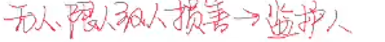 无人、限人致人损害→监护人